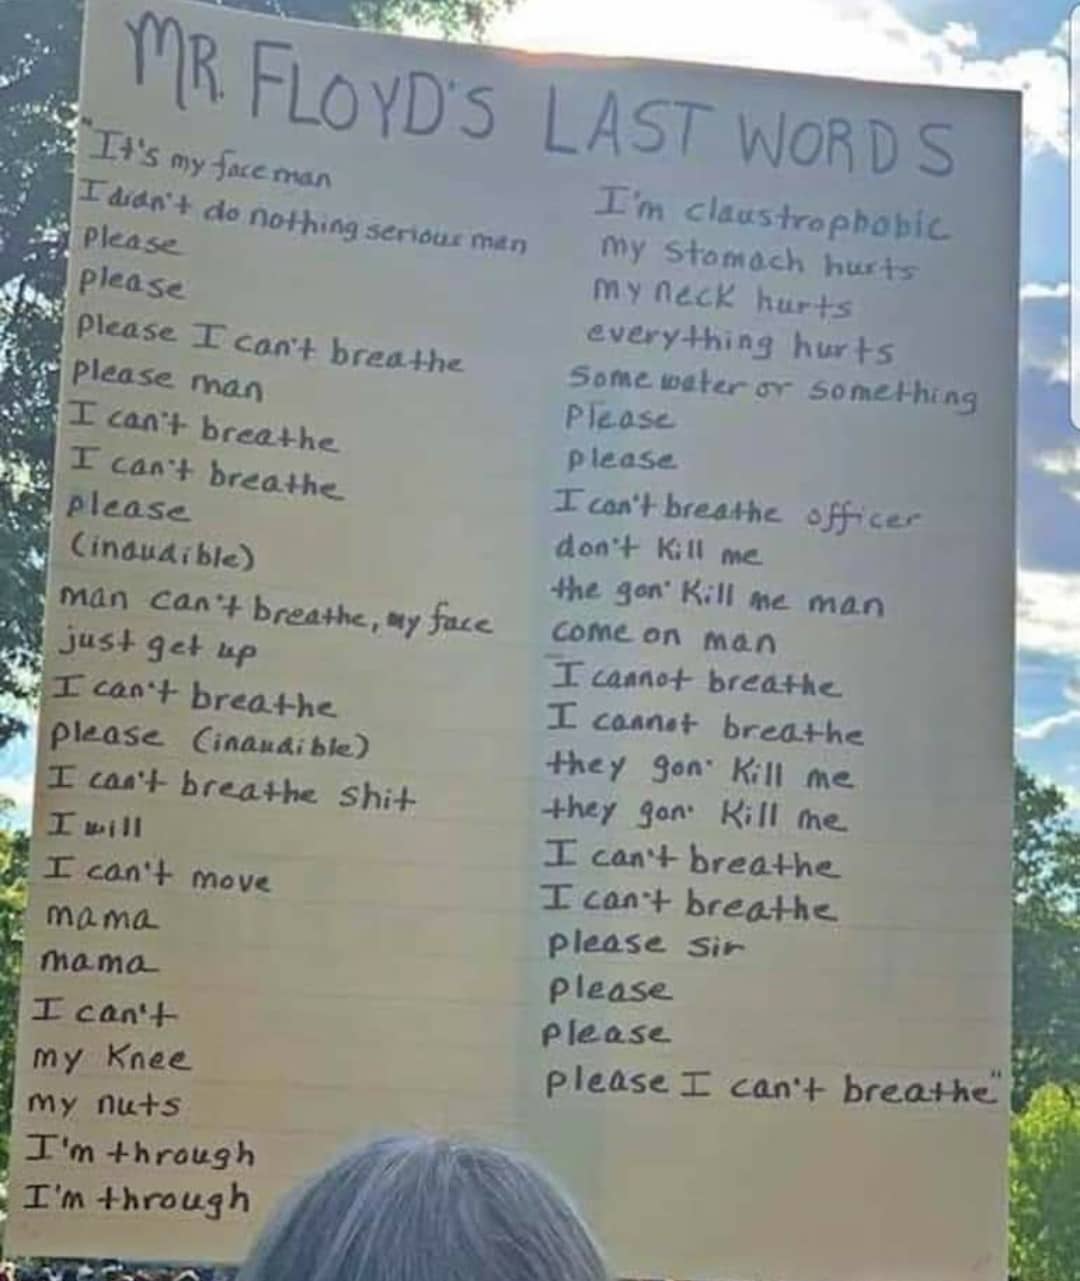 MR. FLOYD'S LAST WORDS
"It's my face man
I didn't do nothing serious man
please
please
please I can't breathe
please man
I can't breathe
I can't breathe
please
(inaudible)
man can't breathe, my face
just get up
I can't breathe
please (inaudible)
I can't breathe shit
I will
I can't move
mama
mama
I can't
my knee
my nuts
I'm through
I'm through
I'm claustrophobic
my stomach hurts
my neck hurts
everything hurts
some water or something
Please
please
I can't breathe officer
don't kill me
the gon' kill me man
come on man
I cannot breathe
I cannot breathe
they gon' kill me
they gon' kill me
I can't breathe
I can't breathe
please sir
please
please
please I can't breathe"